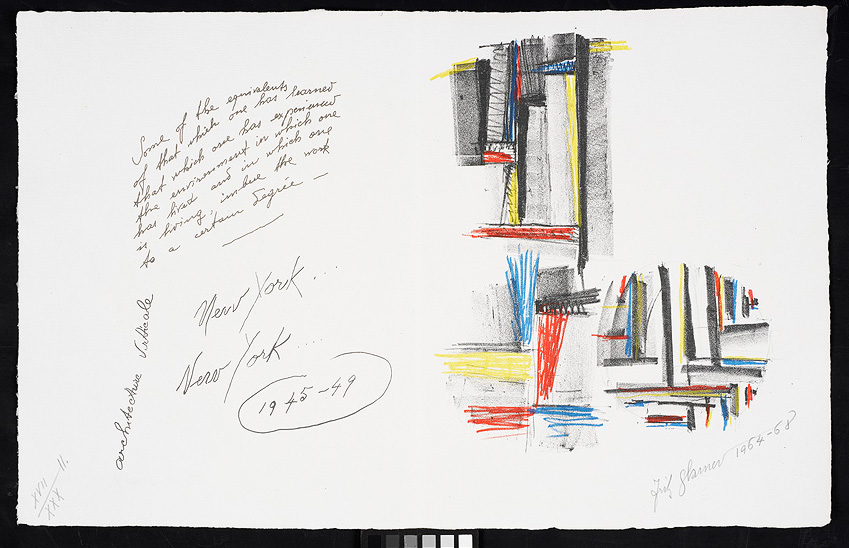 Some of the equivalents
of that which one has learned
that which one has experienced
the environment in which one
has lived and in which one
is living, imbue the work
to a certain degrée —
New York ...
New York ...
1945-49
architecture Verticale
XVII
XXX
II.
Fritz Glarner 1964-68